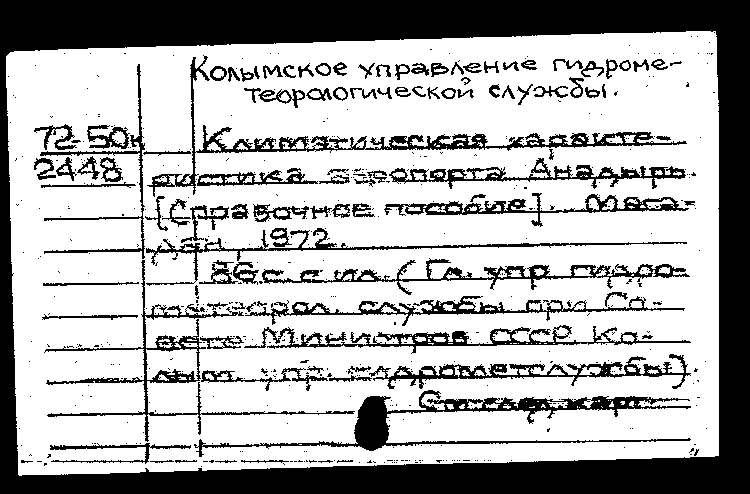 Колымское управление гидроме-
теорологической службы.
72-50к
2448
Климатическая характе-
ристика аэропорта Анадырь.
[Справочное пособие]. Мага-
дан, 1972.
86 с. с ил. (Гл. упр. гидро-
метеорол. службы при Со-
вете Министров СССР. Ко-
лым. упр. гидрометслужбы).
См. след. карт.